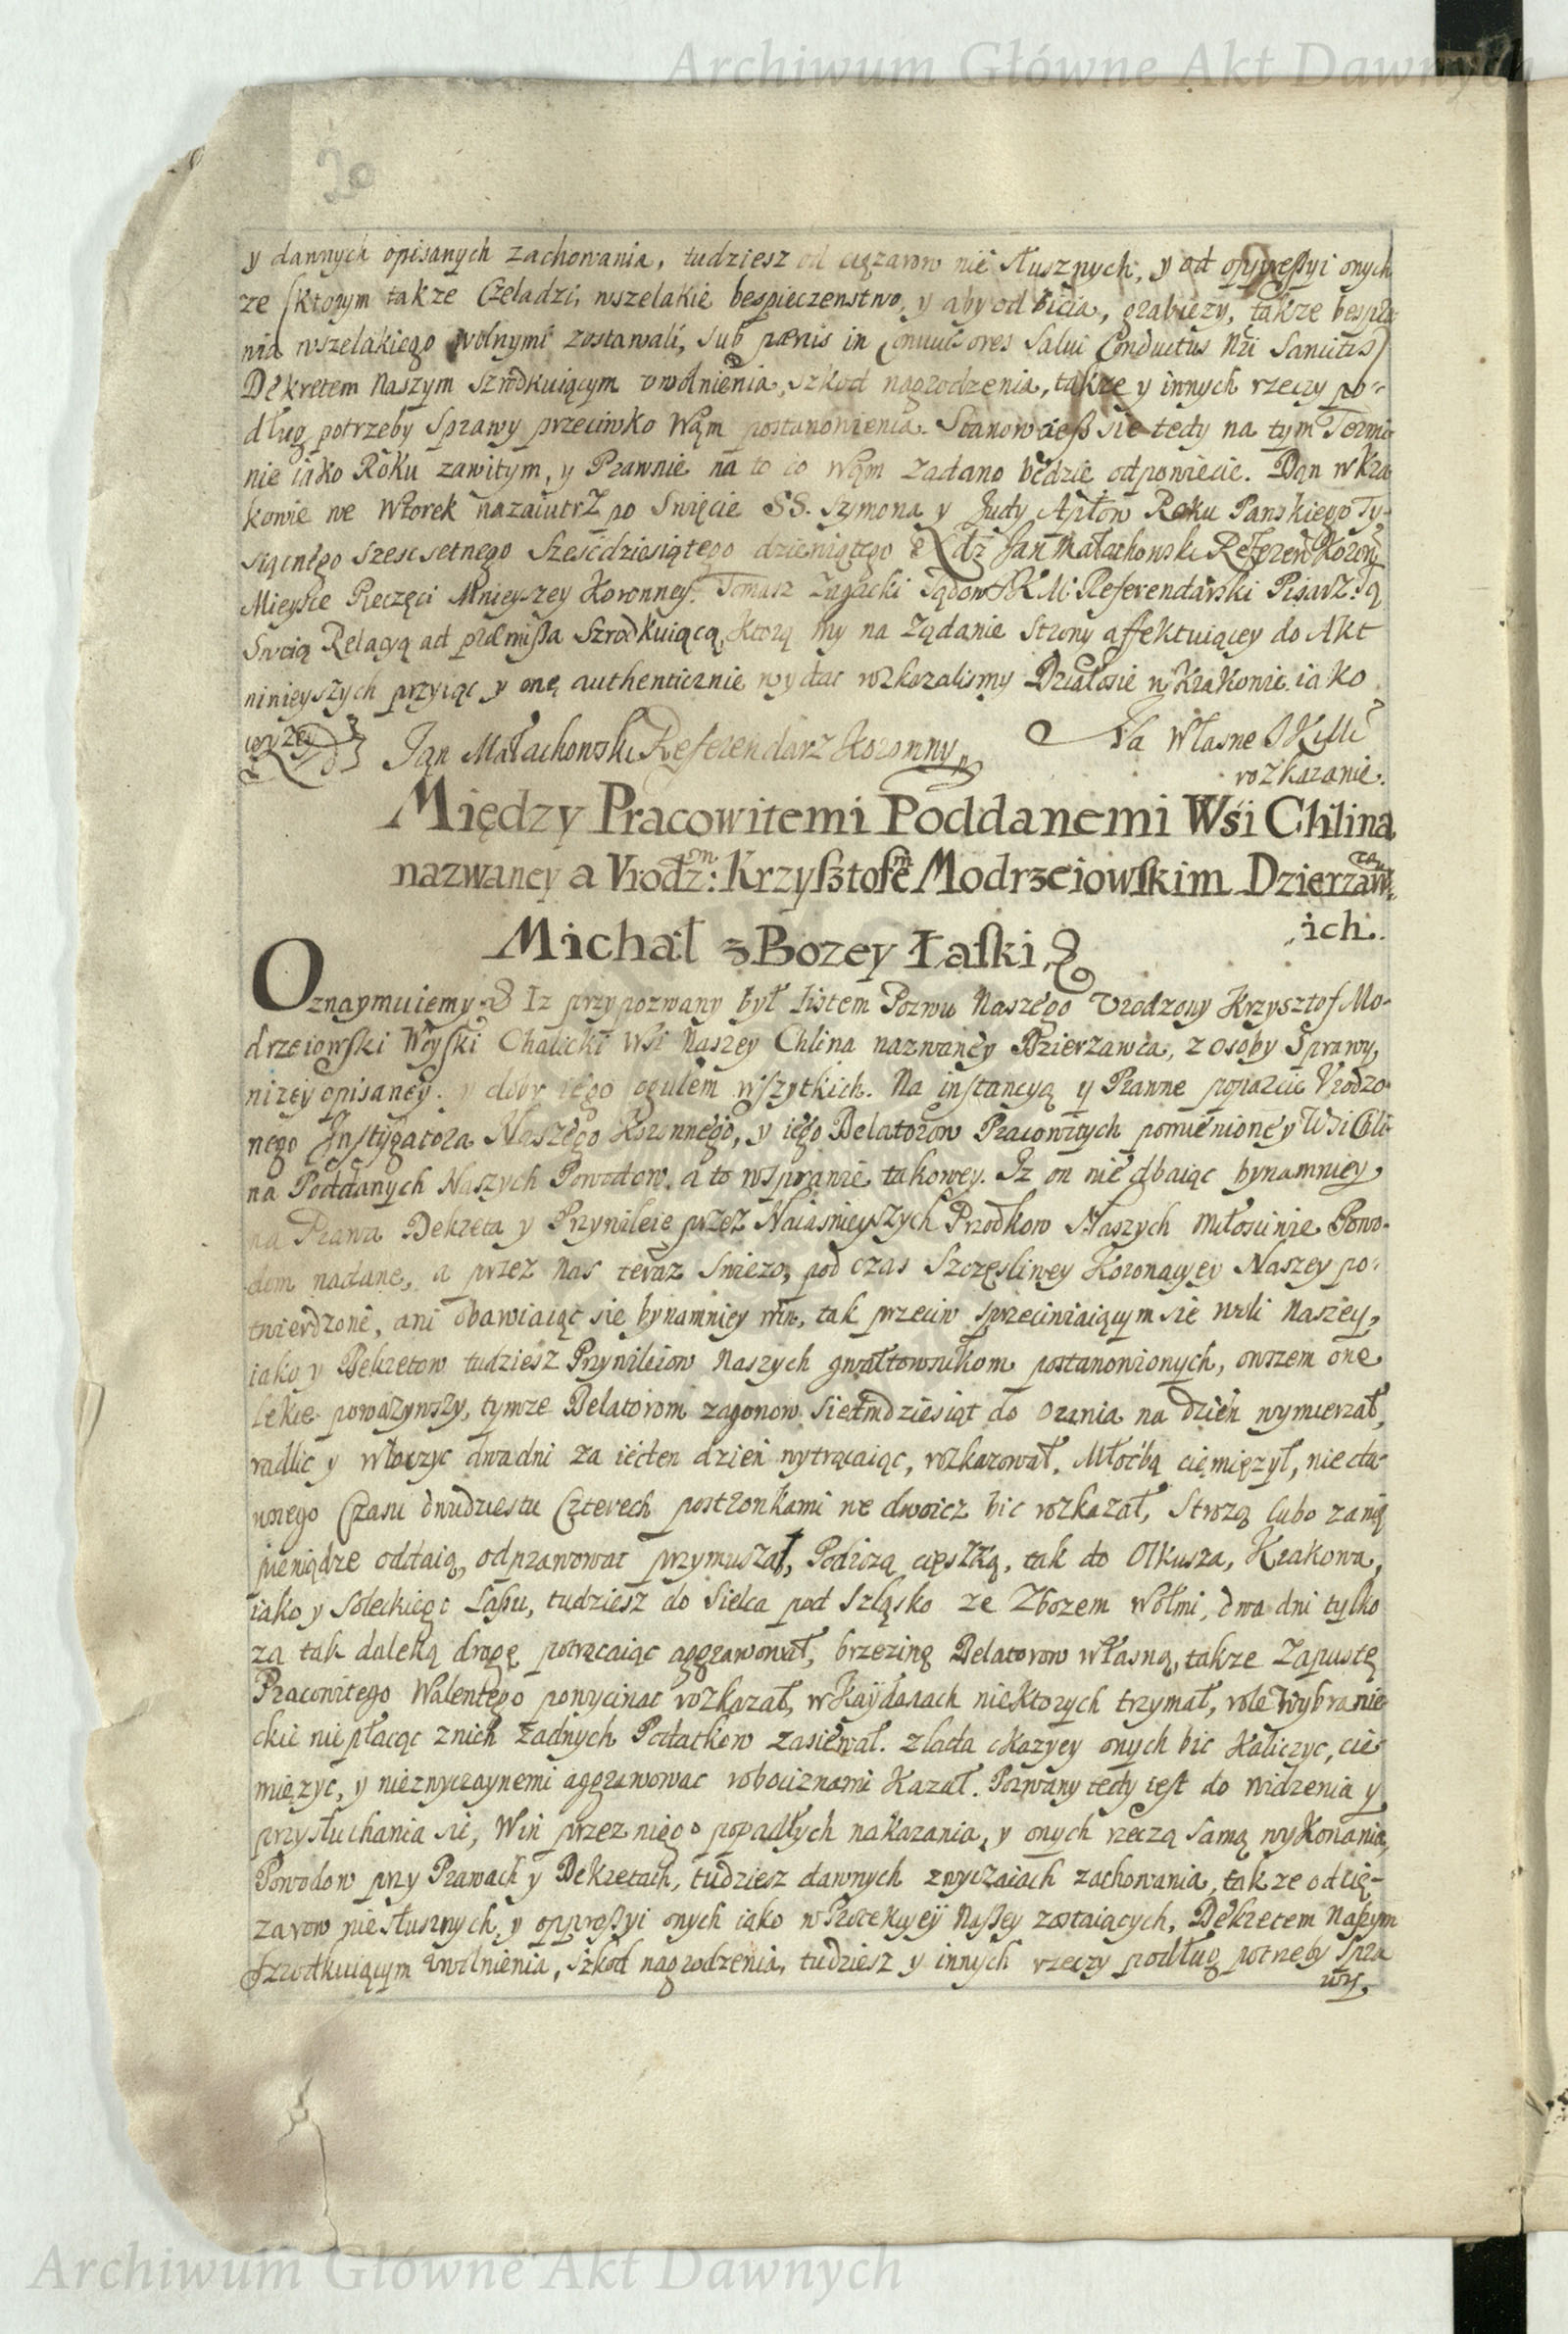 Archiwum Główne Akt Dawnych
20
y dawnych opisanych zachowania, tudziesz od ciązarow nie słusznych, y od oppressyi onych
ze (ktorym takze Czeladzi, wszelakie bespieczenstwo, y aby od bicia, grabiezy, takze bespra
nia wszelakiego wolnymi zostawali, sub pœnis in Convulsores Salui Conductus Nri Sancitis)
Dekretem Naszym szrodkuiącym vwolnienia, szkod nagrodzenia, takze y innych rzeczy po-
dług potrzeby Sprawy przeciwko Wąm postanowienia. Stanowcieß się tedy na tym Termi
nie iako Roku zawitym, y Prawnie na to co wąm zadano będzie odpowiecie. Dąn w Kra
kowie we Wtorek nazaiutrz po Swięcie SS. Szymona y Judy Aptłow Roku Panskiego Ty-
siącnego szescsetnego Sześcdziesiątego dziewiątego Jan Małachowski Referen Koron
Mieysce Pieczęci Mnieyszey Koronney. Tomasz Zagacki Sądow JKM Referendarski Pisarz. Tą
Swoią Relacyą ad præmißa Szrodkuiącą, Ktorą my na Ządanie Strony affektuiącey do Akt
ninieyszych przyiąc y onę authenticznie wydac rozkazalismy Działosie w Krakowie iako
wyzey Jąn Małachowski Referendarz Koronny Na Własne JKMci
rozkazanie.
Między Pracowitemi Poddanemi Wśi Chlina
nazwaney a Vrodz:m Krzysztofem Modrzeiowskim Dzierzaw:cą
ich.
Michał z Bozey Łaski
Oznaymuiemy Iz przypozwany był Listem Pozwu Naszego Vrodzony Krzysztof Mo-
drzeiowski Woyski Chalicki Wsi Naszey Chlina nazwaney Dzierzawca, z osoby Sprawy,
nizey opisaney. y dobr iego ogulem wszytkich. Na instancyą y Prawne poparcie Vrodzo-
nego Instygatora Naszego Koronnego, y iego Delatorow Pracowitych pomienioney Wsi Chli-
na Poddanych Naszych Powodow. a to w sprawie takowey. Iz on nie dbaiąc bynamniey
na Prawa Dekreta y Przywileie przez Naiasnieyszych Przodkow Naszych miłosciwie Powo-
dom nadane, a przez Nas teraz swiezo, pod czas Szczęsliwey Koronacyey Naszey po-
twierdzone, ani obawiaiąc się bynamniey win, tak przeciw sprzeciwiaiącym się woli Naszey,
iako y Dekretow tudziesz Przywileiow Naszych gwałtownikom postanowionych, owszem one
lekce powazywszy, tymze Delatorom zagonow siedmdziesiąt do orania na dzień wymierzał,
radlic y włoczyc dwa dni za ieden dzień wytrącaiąc, rozkazował, Młoćbą ciemięzył, nie da-
wnego Czasu dwudziestu Czterech postronkami we dwoicz bic rozkazał, Strozą lubo za nią
pieniądze oddaią, odprawowac przymuszał, Podrozą cięszką, tak do Olkusza, Krakowa,
iako y Soleckiego Laßu, tudziesz do Sielca pod Szląsko ze Zbozem wołmi, dwa dni tylko
za tak daleką drogę potrącaiąc aggrawował, brzezinę Delatorow własną, takze Zapustę
Pracowitego Walentego powycinac rozkazał, w Kaydanach niektorych trzymał, role Wybranie
ckie nie płacąc z nich zadnych Podatkow zasiewał. z lada okazyey onych bic kaliczyc, cie
mięzyc, y niezwyczaynemi aggrawowac robociznami kazał. Pozwany tedy iest do widzenia y
przysłuchania się, Win przez niego popadłych nakazania, y onych rzeczą samą wykonania,
Powodow przy Prawach y Dekretach, tudziesz dawnych zwyczaiach zachowania, takze od cię-
zarow niesłusznych, y oppreßyi onych iako w Protekcyey Naßey zostaiących, Dekretem Naßym
szrodkuiącym vwolnienia, szkod nagrodzenia, tudziesz y innych rzeczy podług potrzeby Spra
wy,
Archiwum Główne Akt Dawnych